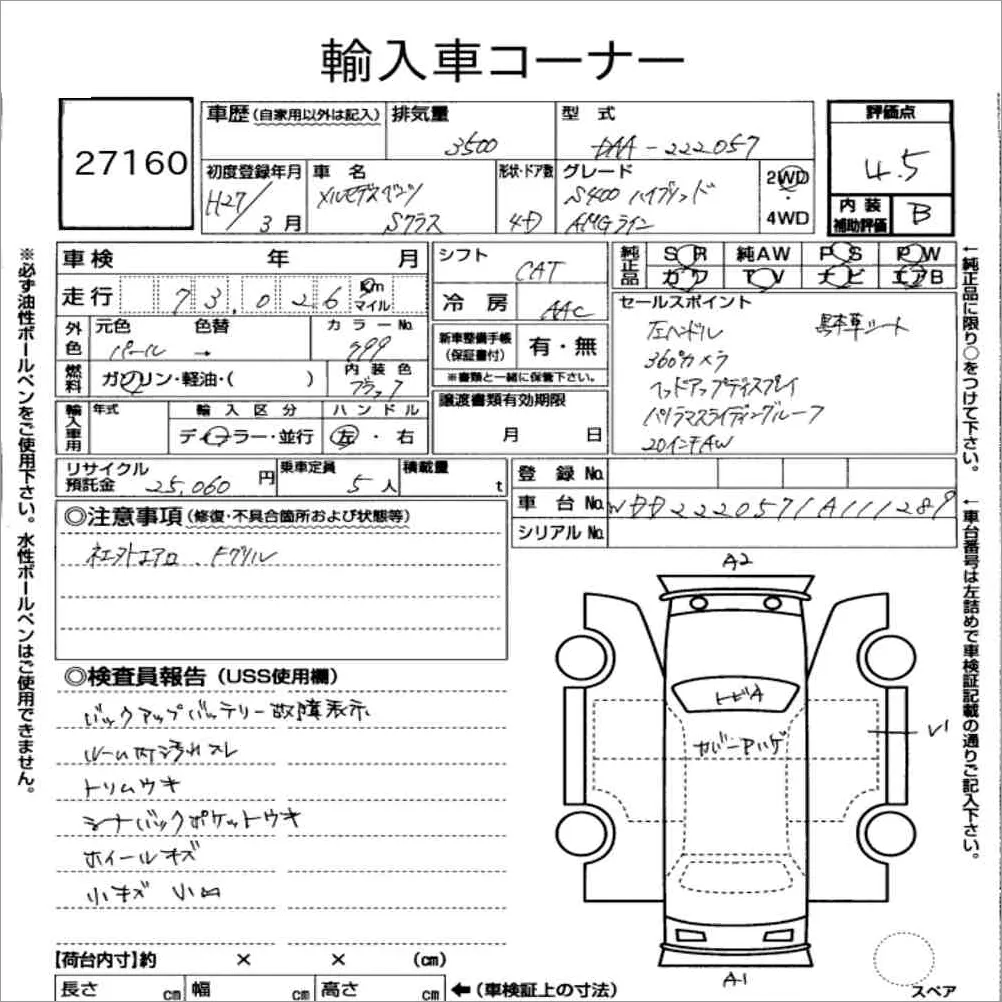 輸入車コーナー
27160
車歴 (自家用以外は記入) 排気量 3500 型式 DAA-222057
評価点 4.5
初度登録年月 H27/3月 車名 メルセデスベンツ Sクラス 形状・ドア数 4D グレード S400 ハイブリッド AMGライン 2WD 4WD
内装補助評価 B
車検 年 月
走行 73,026 Km マイル
外色 元色 パール 色替 → カラーNo. 799
燃料 ガソリン・軽油・( ) 内装色 ブラック
輸入車用 年式 輸入区分 ディーラー・並行 ハンドル 左・右
シフト CAT
冷房 AAC
新車整備手帳(保証書付) 有・無
※書類と一緒に保管下さい。
譲渡書類有効期限 月 日
純正品 SR 純AW PS PW
カワ TV ナビ エアB
セールスポイント
左ハンドル 黒本革シート
360°カメラ
ヘッドアップディスプレイ
パノラマスライディングルーフ
20インチAW
リサイクル預託金 25,060円 乗車定員 5人 積載量 t
登録No.
車台No. WDD2220571A111289
シリアルNo.
◎注意事項 (修復・不具合箇所および状態等)
社外エアロ、Fグリル
◎検査員報告 (USS使用欄)
バックアップバッテリー故障表示
ルーム内汚れスレ
トリムウキ
シートバックポケットウキ
ホイールキズ
小キズ 小凹
A2
トビA
カバーPハゲ
A1
スペア
【荷台内寸】約 × × (cm)
長さ cm 幅 cm 高さ cm ←(車検証上の寸法)
※必ず油性ボールペンをご使用下さい。水性ボールペンはご使用できません。
←純正品に限り○をつけて下さい。
←車台番号は左詰めで車検証記載の通りご記入下さい。